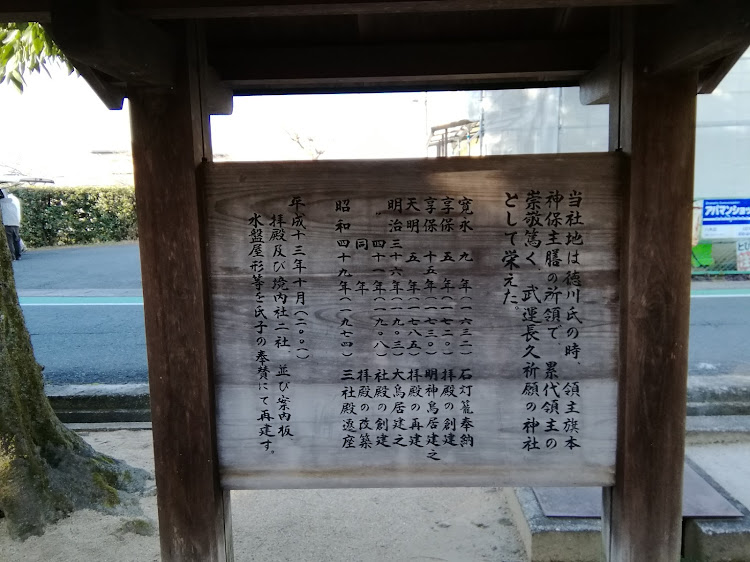 当社地は徳川氏の時、領主旗本
神保主膳の所領で、累代領主の
崇敬篤く、武運長久祈願の神社
として栄えた。
寛永九年(一六三二)石灯籠奉納
享保五年(一七二〇)拝殿の創建
享保十五年(一七三〇)明神鳥居建之
天明五年(一七八五)拝殿の再建
明治三十六年(一九〇三)大鳥居建之
〃四十一年(一九〇八)社殿の創建
同年 拝殿の改築
昭和四十九年(一九七四)三社殿遷座
平成十三年十月(二〇〇一)
拝殿及び境内社二社、並び案内板
水盤屋形等を氏子の奉賛にて再建す。
アパマンショップ